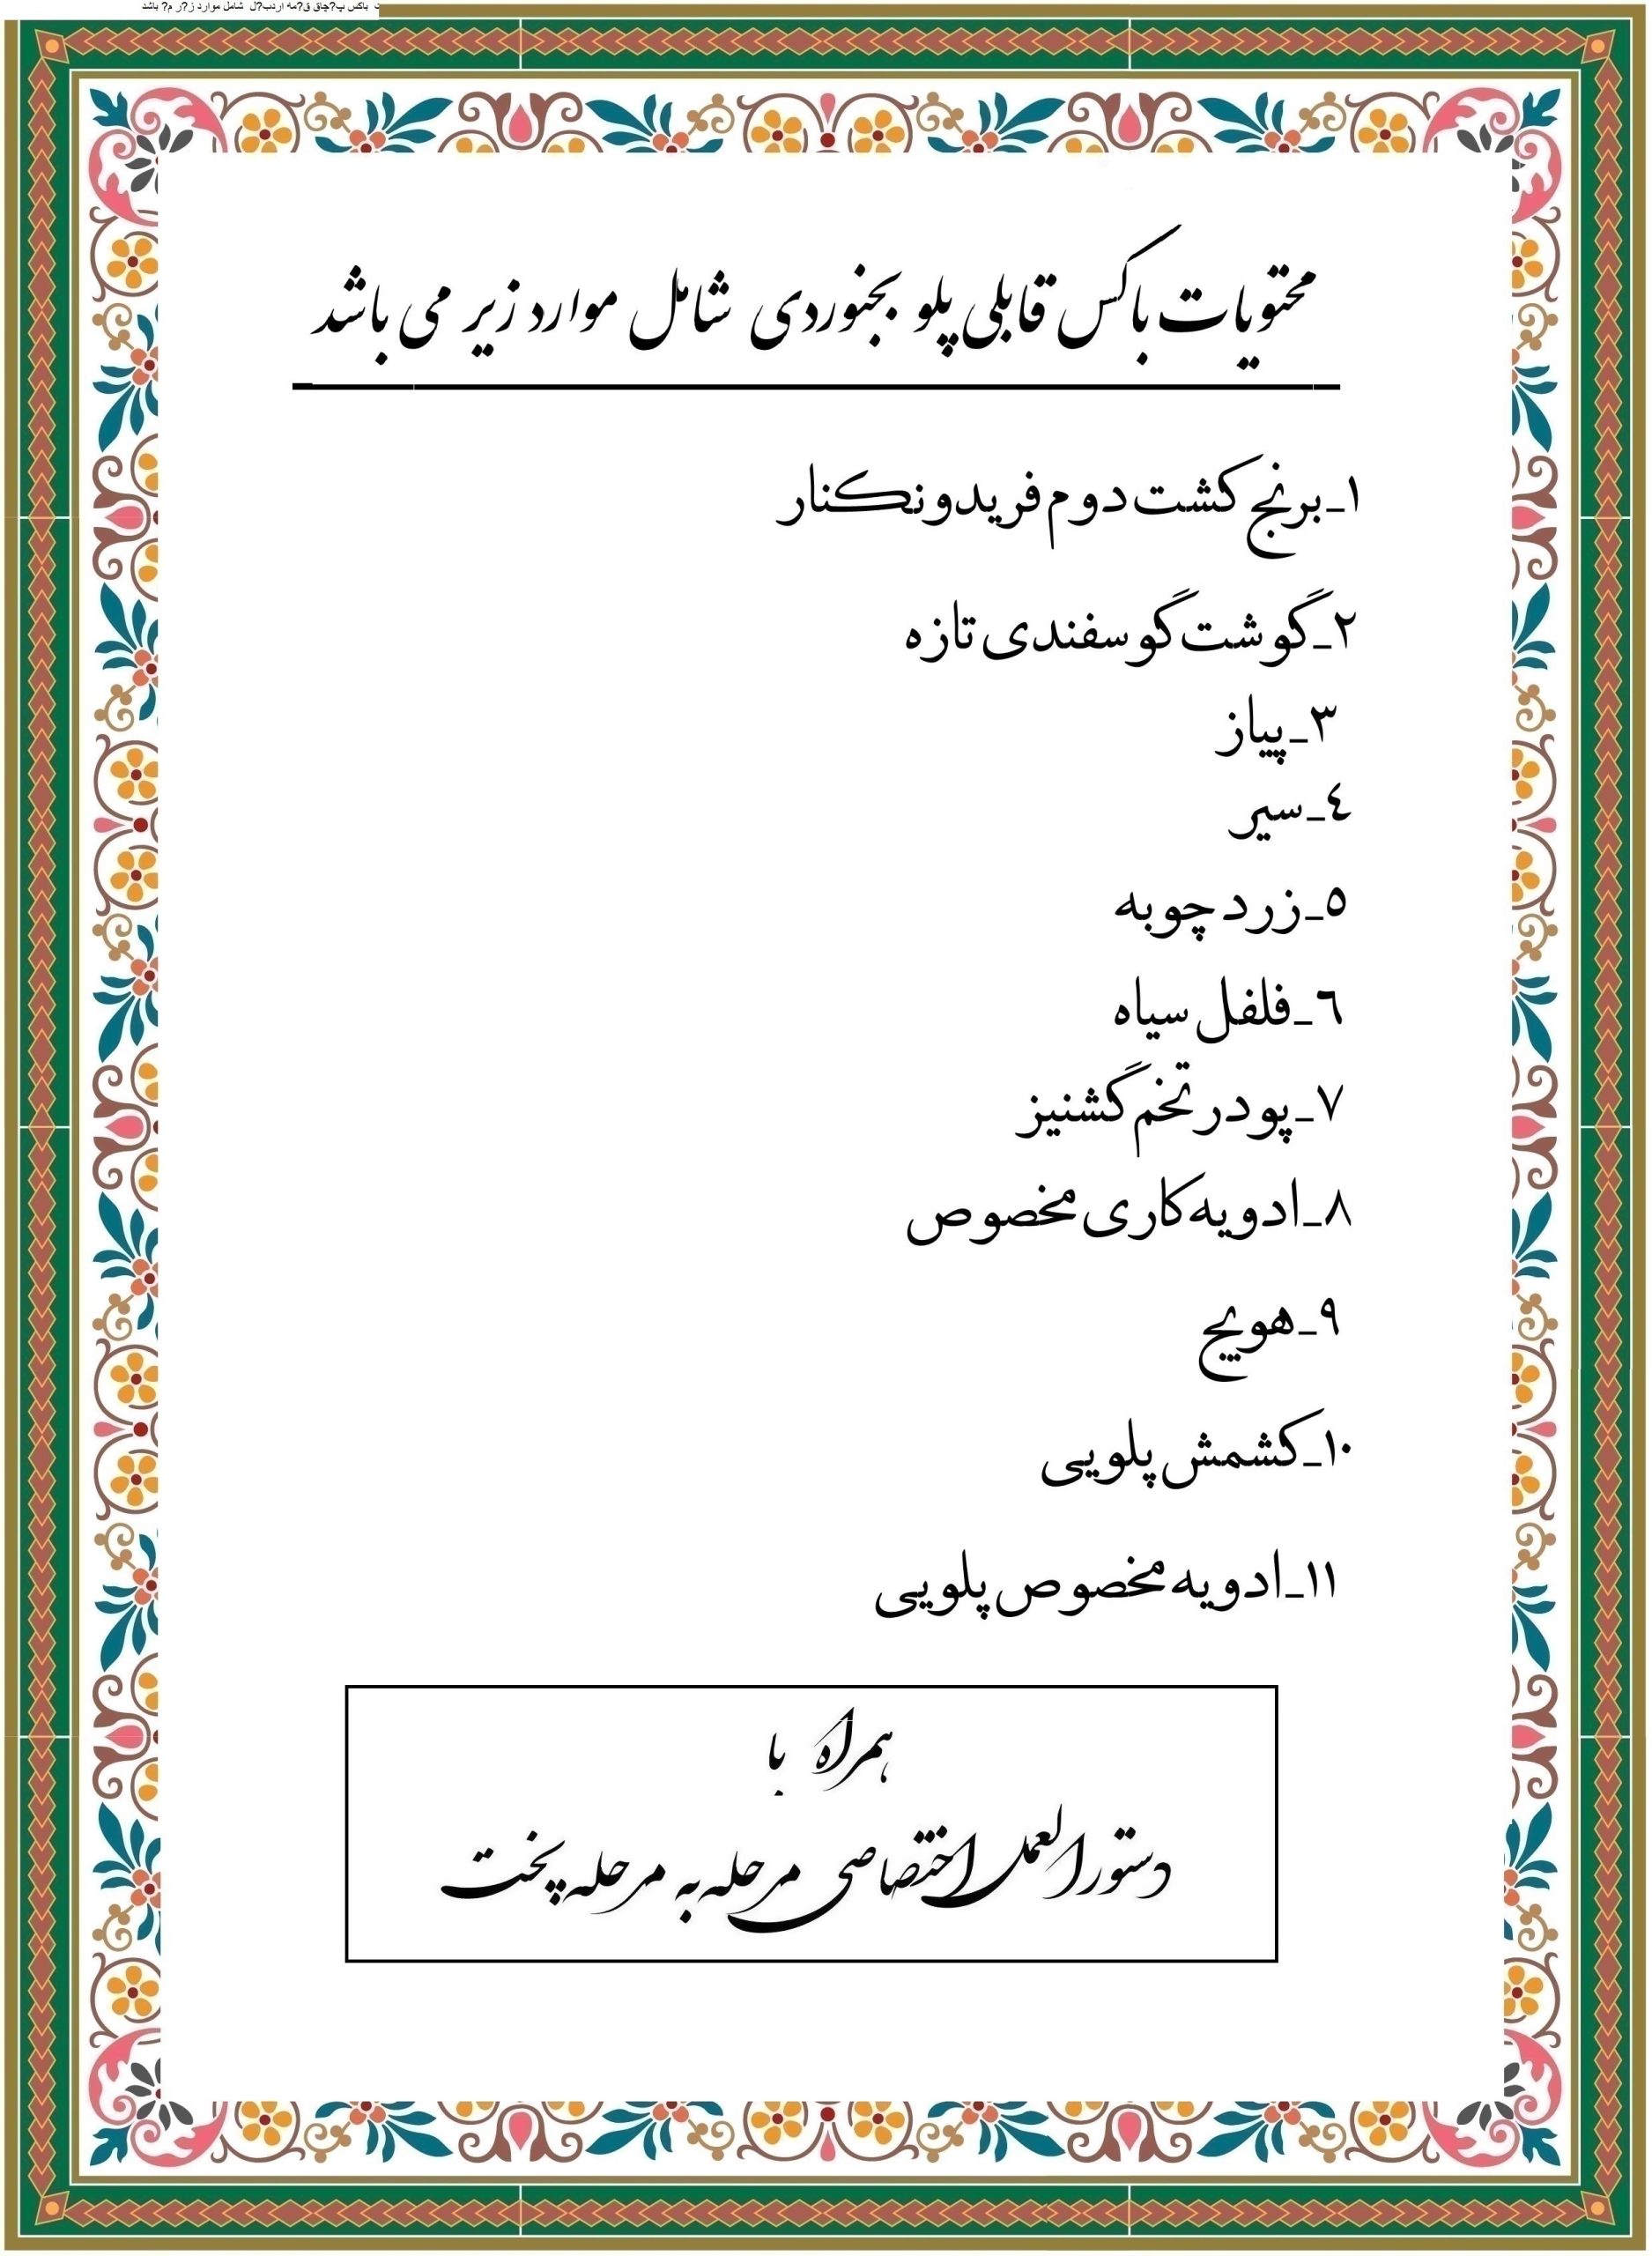 باکس پ?چاق ق?مه اردب?ل شامل موارد ز?ر م? باشد
محتویات باکس قابلی پلو بجنوردی شامل موارد زیر می باشد
۱_برنج کشت دوم فریدونکنار
۲_گوشت گوسفندی تازه
۳_پیاز
٤_سیر
٥_زردچوبه
٦_فلفل سیاه
۷_پودر تخم گشنیز
۸_ادویه کاری مخصوص
۹_هویج
۱۰_کشمش پلویی
۱۱_ادویه مخصوص پلویی
همراه با
دستورالعمل اختصاصی مرحله به مرحله پخت